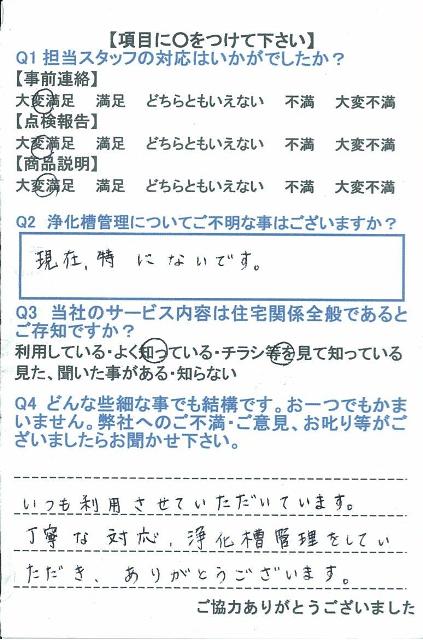 【項目に〇をつけて下さい】
Q1 担当スタッフの対応はいかがでしたか？
【事前連絡】
大変満足 満足 どちらともいえない 不満 大変不満
【点検報告】
大変満足 満足 どちらともいえない 不満 大変不満
【商品説明】
大変満足 満足 どちらともいえない 不満 大変不満
Q2 浄化槽管理についてご不明な事はございますか？
現在、特にないです。
Q3 当社のサービス内容は住宅関係全般であると
ご存知ですか？
利用している・よく知っている・チラシ等を見て知っている
見た、聞いた事がある・知らない
Q4 どんな些細な事でも結構です。お一つでもかま
いません。弊社へのご不満・ご意見、お叱り等がご
ざいましたらお聞かせ下さい。
いつも利用させていただいています。
丁寧な対応、浄化槽管理をしてい
ただき、ありがとうございます。
ご協力ありがとうございました